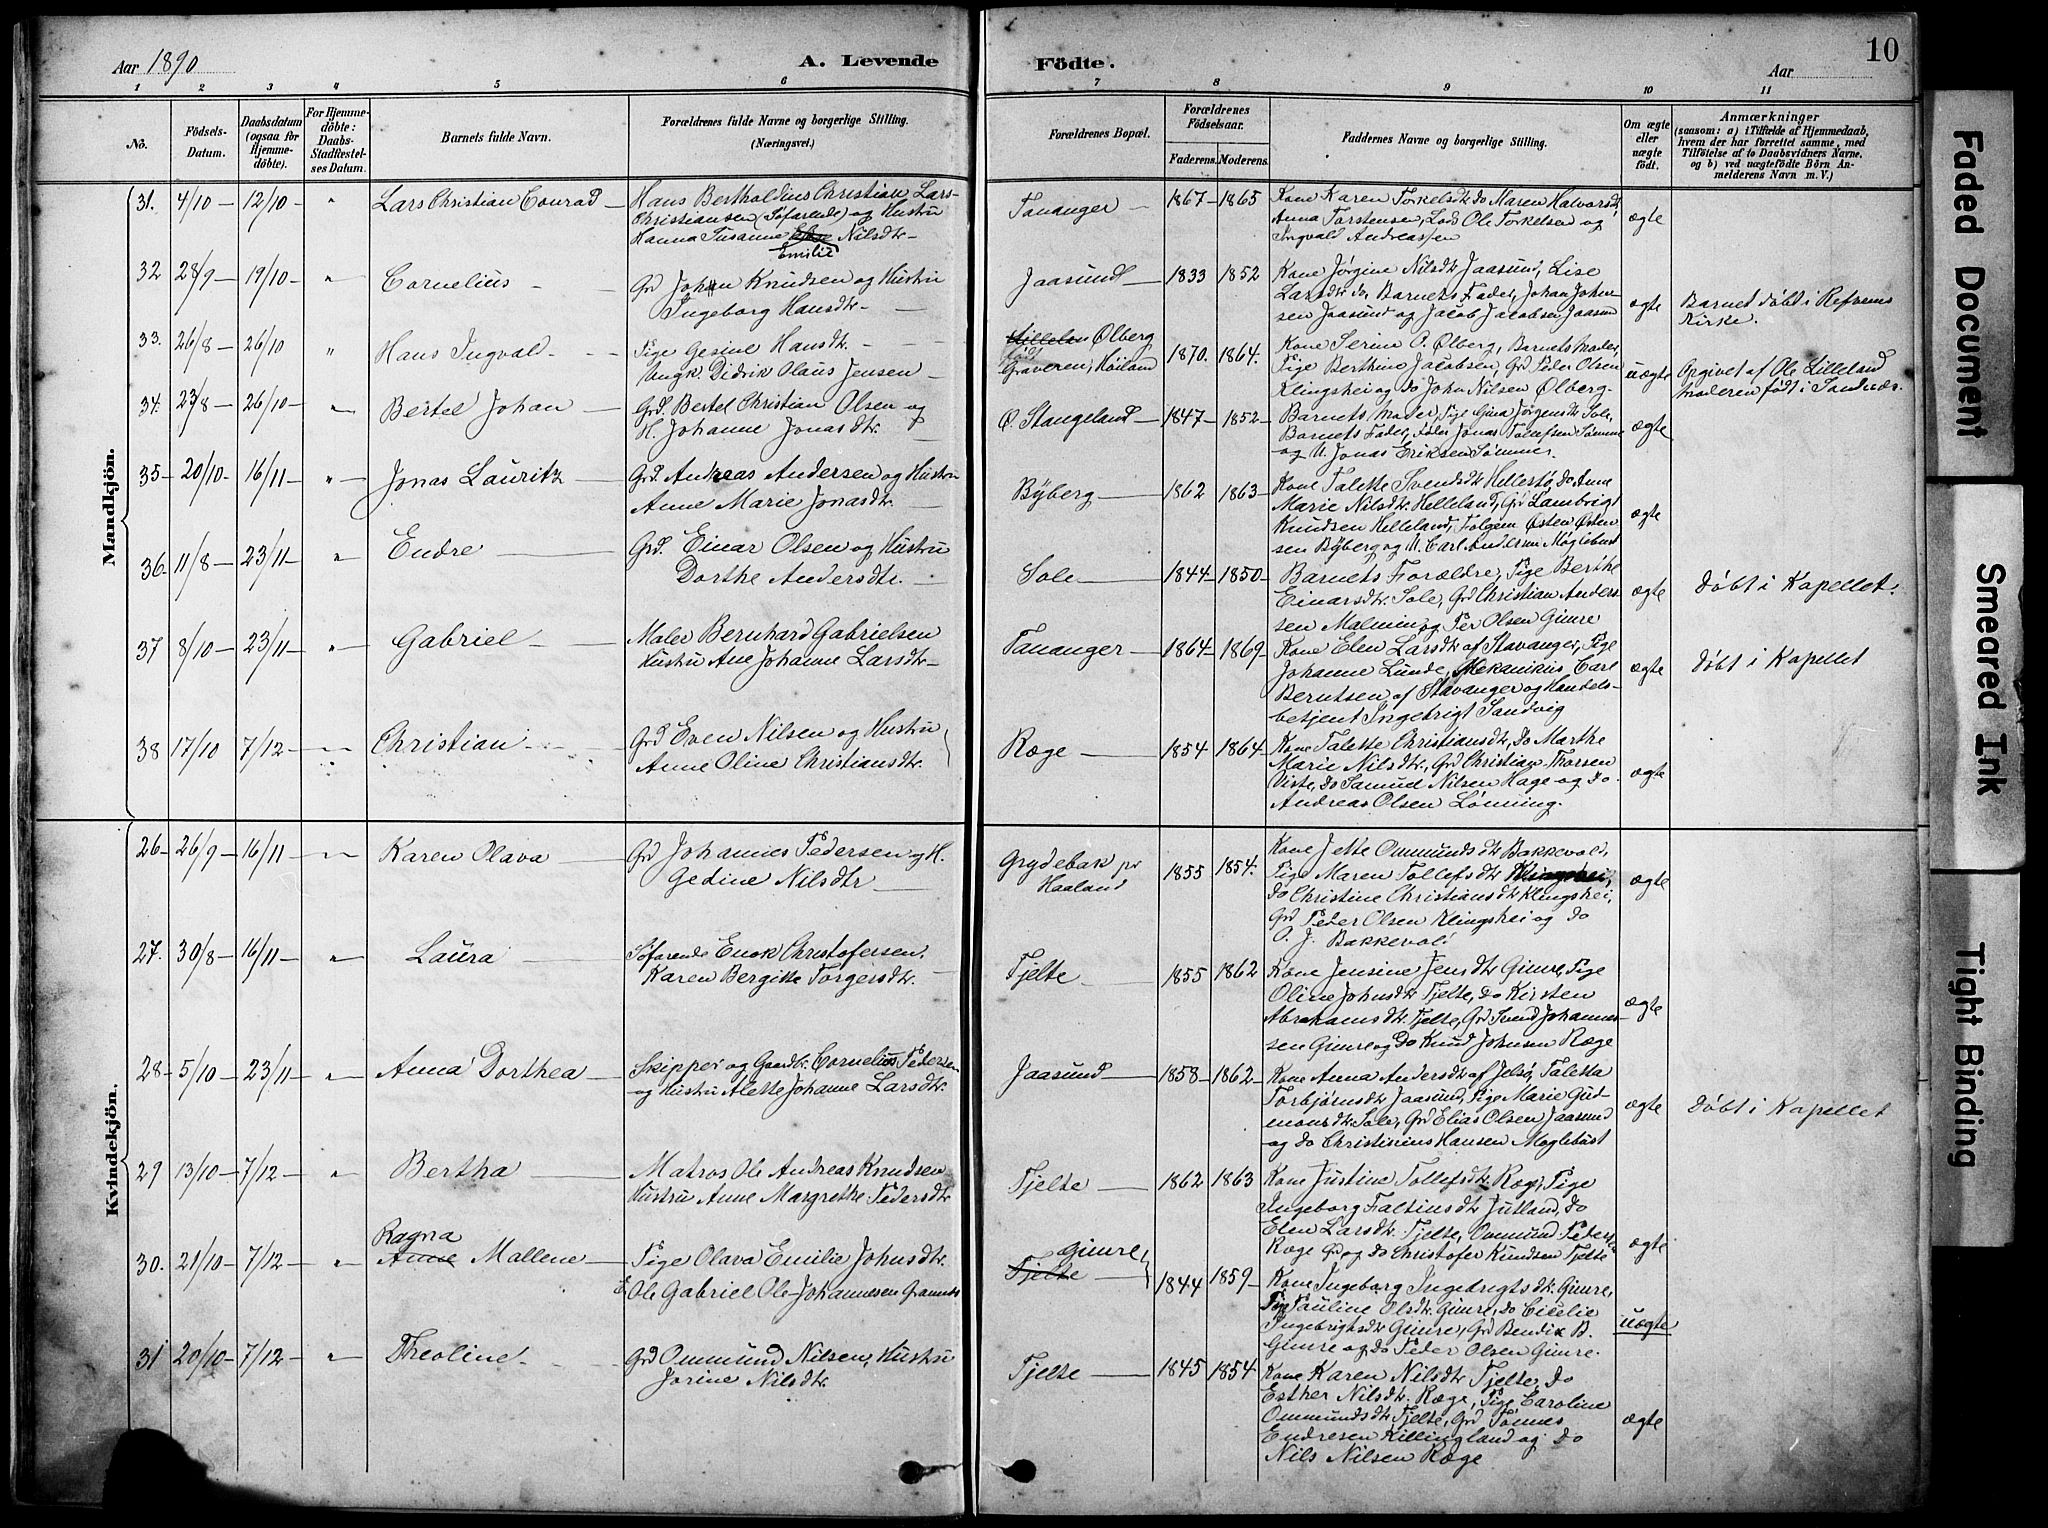 Aar 1890
A. Levende
Födte.
Aar
10
1 2 3 4 5 6 7 8 9 10 11
No.
Födsels-
Datum.
Daabsdatum
(ogsaa for
Hjemme-
döbte).
For Hjemme-
döbte:
Daabs-
Stadfestel-
ses Datum.
Barnets fulde Navn.
Forældrenes fulde Navne og borgerlige Stilling.
(Næringsvei.)
Forældrenes Bopæl.
Forældrenes
Födselsaar.
Faderens. Moderens.
Faddernes Navne og borgerlige Stilling.
Om ægte
eller
uægte
födt.
Anmærkninger
(saasom: a) i Tilfælde af Hjemmedaab,
hvem der har forrettet samme, med
Tilföielse af to Daabsvidners Navne,
og b) ved uægtefödte Börn An-
melderens Navn m. V.)
Mandkjön.
31. 4/10 12/10 " Lars Christian Conrad
Hans Bertholdius Christian Lars-
Christiansen (Söfarende) og Hustru
Hanna Susanne Nilsdtr
Emilie
Tananger 1867 1865
Kone Karen Torkelsdtr, do Maren Halvorsdt,
Anna Torstensen, Lods Ole Torkelsen og
Ingvald Andreassen
ægte
32 28/9 19/10 " Cornelius
Grd Johan Knudsen og Hustru
Ingeborg Hansdtr
Jaasund 1833 1852
Kone Jørgine Nilsdtr Jaasund, Lise
Larsdtr do, Barnets Fader, Johan Johnsen
Jaasund og Jacob Jacobsen Jaasund
ægte
Barnet döbt i Refheims
Kirke.
33. 26/8 26/10 " Hans Ingvald
Pige Gesine Hansdtr
Ungk. Didrik Olaus Jensen
Lilleland Ølberg
født
Graveren, Höiland
1870. 1864.
Kone Serine O. Ølberg, Barnets Moder,
Pige Berthine Jacobsen, Grd Peder Olsen
Klingshei og do John Nilsen Ølberg
uægte
Opgivet af Ole Lilleland
Moderen födt i Sandnæs.
34. 23/8 26/10 " Bertel Johan
Grd. Bertel Christian Olsen og
H. Johanne Jonasdtr.
Ö. Stangeland 1847 1852
Barnets Moder, Pige Gina Jörgensdtr Sole,
Barnets Fader, Jonas Tollefsen Sömme
og U. Jonas Eriksen Sömme.
ægte
35 20/10 16/11 " Jonas Lauritz
Grd. Andreas Andersen og Hustru
Anne Marie Jonasdtr.
Byberg 1862 1863
Kone Talette Svendsdtr Hellestö, do Anne
Marie Nilsdtr. Helleland, Grd Lambrigt
Knudsen Helleland, Östen Östen-
sen Byberg og U. Carl Andersen Möglebust
ægte
36 11/8 23/11 " Endre
Grd. Einar Olsen og Hustru
Dorthe Andersdtr.
Sole 1844 1850
Barnets Forældre, Pige Berthe
Einarsdtr. Sole, Grd Christian Anders-
sen Malmin og Per Olsen Gimre
ægte
Döbt i Kapellet.
37 8/10 23/11 " Gabriel
Maler Bernhard Gabrielsen
Hustru Ane Johanne Larsdtr
Tananger 1864 1869
Kone Elen Larsdtr af Stavanger, Pige
Johanne Lunde, Mekanikus Carl
Berntsen af Stavanger og Handels-
betjent Ingebrigt Sandvig
ægte
Döbt i Kapellet
38 17/10 7/12 " Christian
Grd Even Nilsen og Hustru
Anne Oline Christiansdtr.
Ræge 1854 1864
Kone Talette Christiansdtr, do Marthe
Marie Nilsdtr, Grd Christian Thorsen
Viste, do Samuel Nilsen Hage og do
Andreas Olsen Lönning.
ægte
Kvindekjön.
26 26/9 16/11 " Karen Olava
Grd Johannes Pedersen og H.
Gedine Nilsdtr
Grydebak pr
Haaland
1855 1854.
Kone Jette Ommundsdtr Bakkevold,
Pige Maren Tollefsdtr Klingshei,
do Christine Christiansdtr Klingshei,
Grd Peder Olsen Klingshei og do
O. J. Bakkevold
ægte
27. 30/8 16/11 " Laura
Söfarende Enok Christofersen,
Karen Bergitte Torgersdtr.
Tjelte 1855 1862
Kone Jensine Jensdtr Gimre, Pige
Oline Johnsdtr Tjelte, do Kirsten
Abrahamsdtr. Tjelte, Grd Svend Johannes-
sen Gimre og do Knud Johnsen Ræge
ægte
28 5/10 23/11 " Anna Dorthea
Skipper og Gaardbr. Cornelius Pedersen
og Hustru Alette Johanne Larsdtr.
Jaasund 1858 1862
Kone Anna Andersdtr af Jelsö, Taletta
Torbjörnsdtr Jaasund, Pige Marie Gud-
monsdtr Sole, Grd Elias Olsen Jaasund
og do Christinius Hansen Moglebust
ægte
Döbt i Kapellet
29 13/10 7/12 " Bertha
Matros Ole Andreas Knudsen
Hustru Anne Margrethe Pedersdtr
Tjelte 1862 1863
Kone Justine Tollefsdtr. Ræge, Pige
Ingeborg Faltinsdtr Jutland, do
Elen Larsdtr. Tjelte, Ommund Petersen
Ræge Grd og do Christofer Knudsen Tjelte
ægte
Ragna
30. 21/10 7/12 " Anne Mallene
Pige Olava Emilie Johnsdtr.
E Ole Gabriel Ole Johannesen Grannes
Gimre
Tjelte
1844 1859
Kone Ingeborg Ingebrigtsdtr Gimre,
Pige Pauline Olsdtr. Gimre, do Cicelie
Ingebrigtsdtr Gimre, Grd Bendix B.
Gimre og do Peder Olsen Gimre.
uægte
31 20/10 7/12 " Theoline
Grd Ommund Nilsen, Hustru
Jorine Nilsdtr.
Tjelte 1845 1854
Kone Karen Nilsdtr Tjelte, do
Esther Nilsdtr. Ræge, Pige Caroline
Ommundsdtr Tjelte, Grd Tönnes
Endresen Killingland og do
Nils Nilsen Ræge
ægte
Faded Document
Smeared Ink
Tight Binding